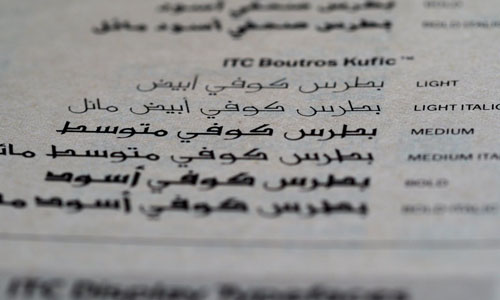 بطرس صحفي أسود
BOLD
بطرس صحفي أسود مائل
BOLD ITALIC
ITC Boutros Kufic™
بطرس كوفي أبيض
LIGHT
بطرس كوفي أبيض مائل
LIGHT ITALIC
بطرس كوفي متوسط
MEDIUM
بطرس كوفي متوسط مائل
MEDIUM ITA
بطرس كوفي أسود
BOLD
بطرس كوفي أسود ما
BOLD ITALIC
ITC Display Typefaces